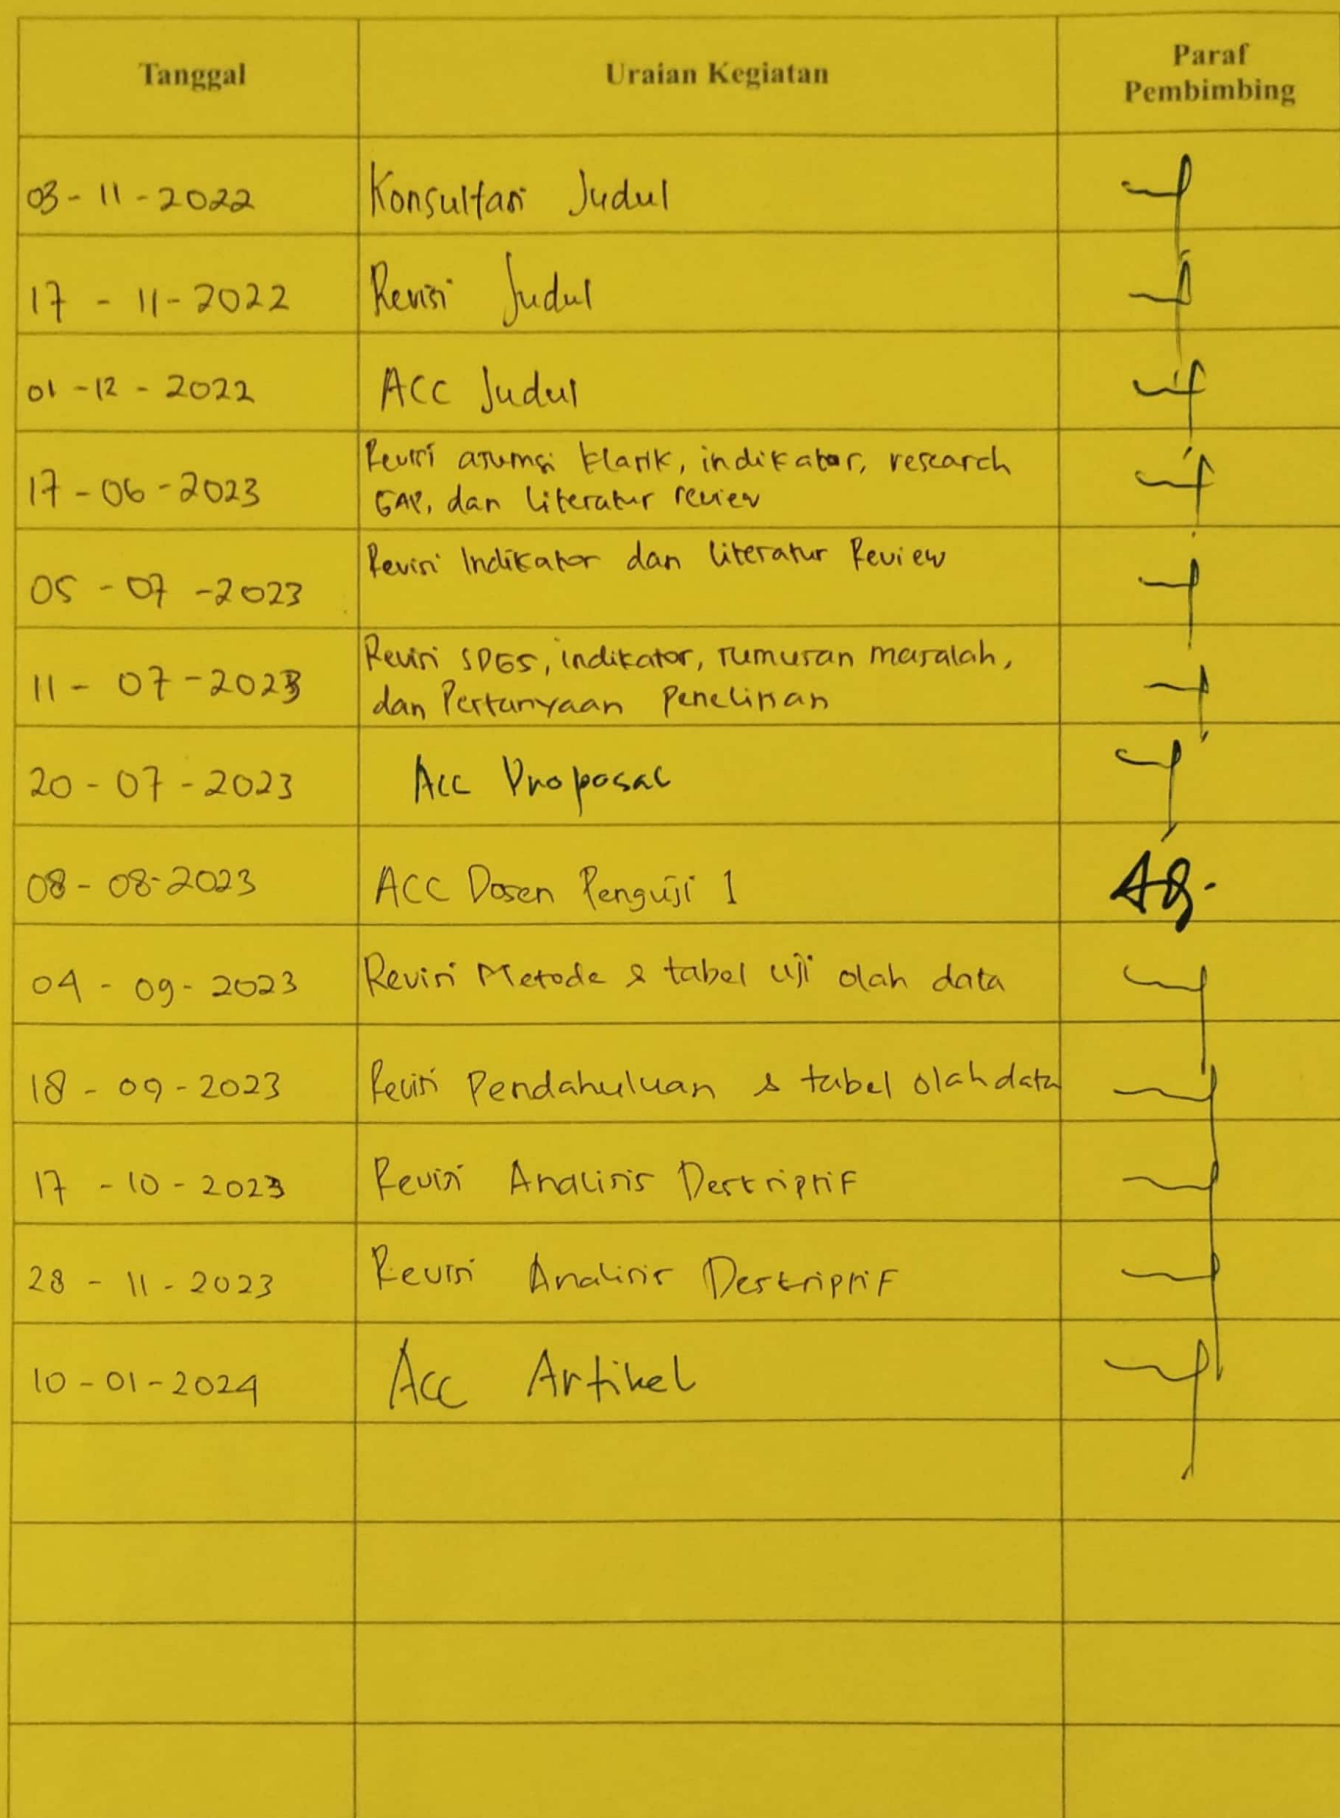 Tanggal Uraian Kegiatan Paraf
Pembimbing
03-11-2022 Konsultasi Judul
17 - 11-2022 Revisi Judul
01 -12 - 2022 ACC Judul
17-06-2023 Revisi asumsi klasik, indikator, research
GAP, dan literatur review
05 - 07 -2023 Revisi Indikator dan literatur Review
11 - 07-2023 Revisi SDGS, indikator, rumusan masalah,
dan Pertanyaan Penelitian
20-07-2023 Acc Proposal
08-08-2023 ACC Dosen Penguji 1
04 - 09- 2023 Revisi Metode & tabel uji olah data
18 - 09 - 2023 Revisi Pendahuluan & tabel olah data
17 - 10 - 2023 Revisi Analisis Deskriptif
28 - 11 - 2023 Revisi Analisis Deskriptif
10 - 01 - 2024 Acc Artikel